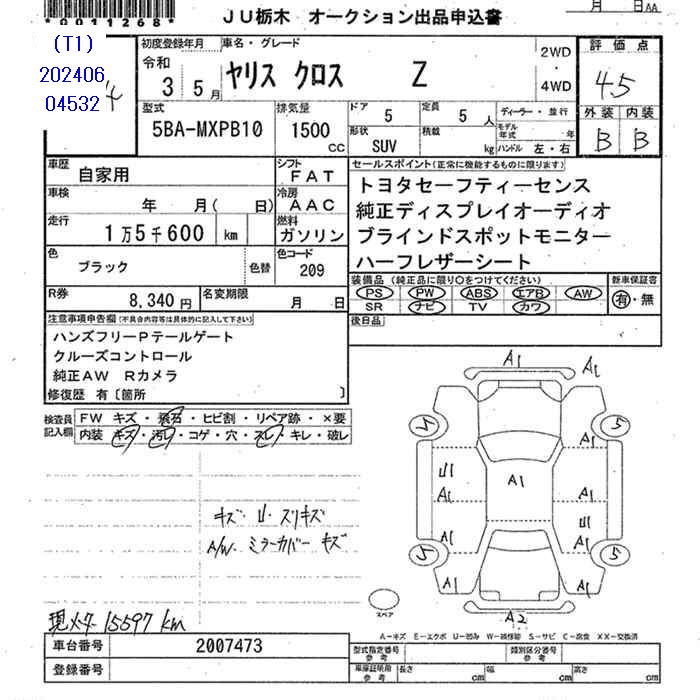 *0011268*
月 日AA
JU栃木 オークション出品申込書
(T1)
202406
04532
初度登録年月 車名・グレード
令和 3 5月
ヤリス クロス Z
2WD
・
4WD
評価点
4.5
外装 内装
B B
型式
5BA-MXPB10
排気量
1500 CC
ドア 5
定員 5人
形状 SUV
積載 kg
ディーラー・並行
モデル年式 年
ハンドル 左・右
車歴 自家用
シフト FAT
車検 年 月( 日)
冷房 AAC
走行 1万5千600 km
燃料 ガソリン
色 ブラック 色替
色コード 209
R券 8,340円
名変期限 月 日
セールスポイント(正常に機能するものに限ります)
トヨタセーフティーセンス
純正ディスプレイオーディオ
ブラインドスポットモニター
ハーフレザーシート
装備品(純正品に限り○をつけてください)
PS PW ABS エアB AW
SR ナビ TV カワ
新車保証書
有・無
後日品
注意事項申告欄(不具合内容等は具体的に記入して下さい)
ハンズフリーPテールゲート
クルーズコントロール
純正AW Rカメラ
修復歴 有〔箇所 〕
検査員記入欄
FW キズ・飛石・ヒビ割・リペア跡・×要
内装 キズ・汚レ・コゲ・穴・スレ・キレ・破レ
キズ U スリキズ
A/W ミラーカバー キズ
現メータ 15597 km
A1
A1
A1
A1
5
5
U1
A1
A1
U1
A1
A1
A1
5
5
A1
A1
A2
スペア
A-キズ E-エクボ U-凹み W-補修跡 S-サビ C-腐食 XX-交換済
車台番号 2007473
登録番号
型式指定番号 参考
類別区分番号 参考
車庫証明用 参考
長さ cm 幅 cm 高さ cm